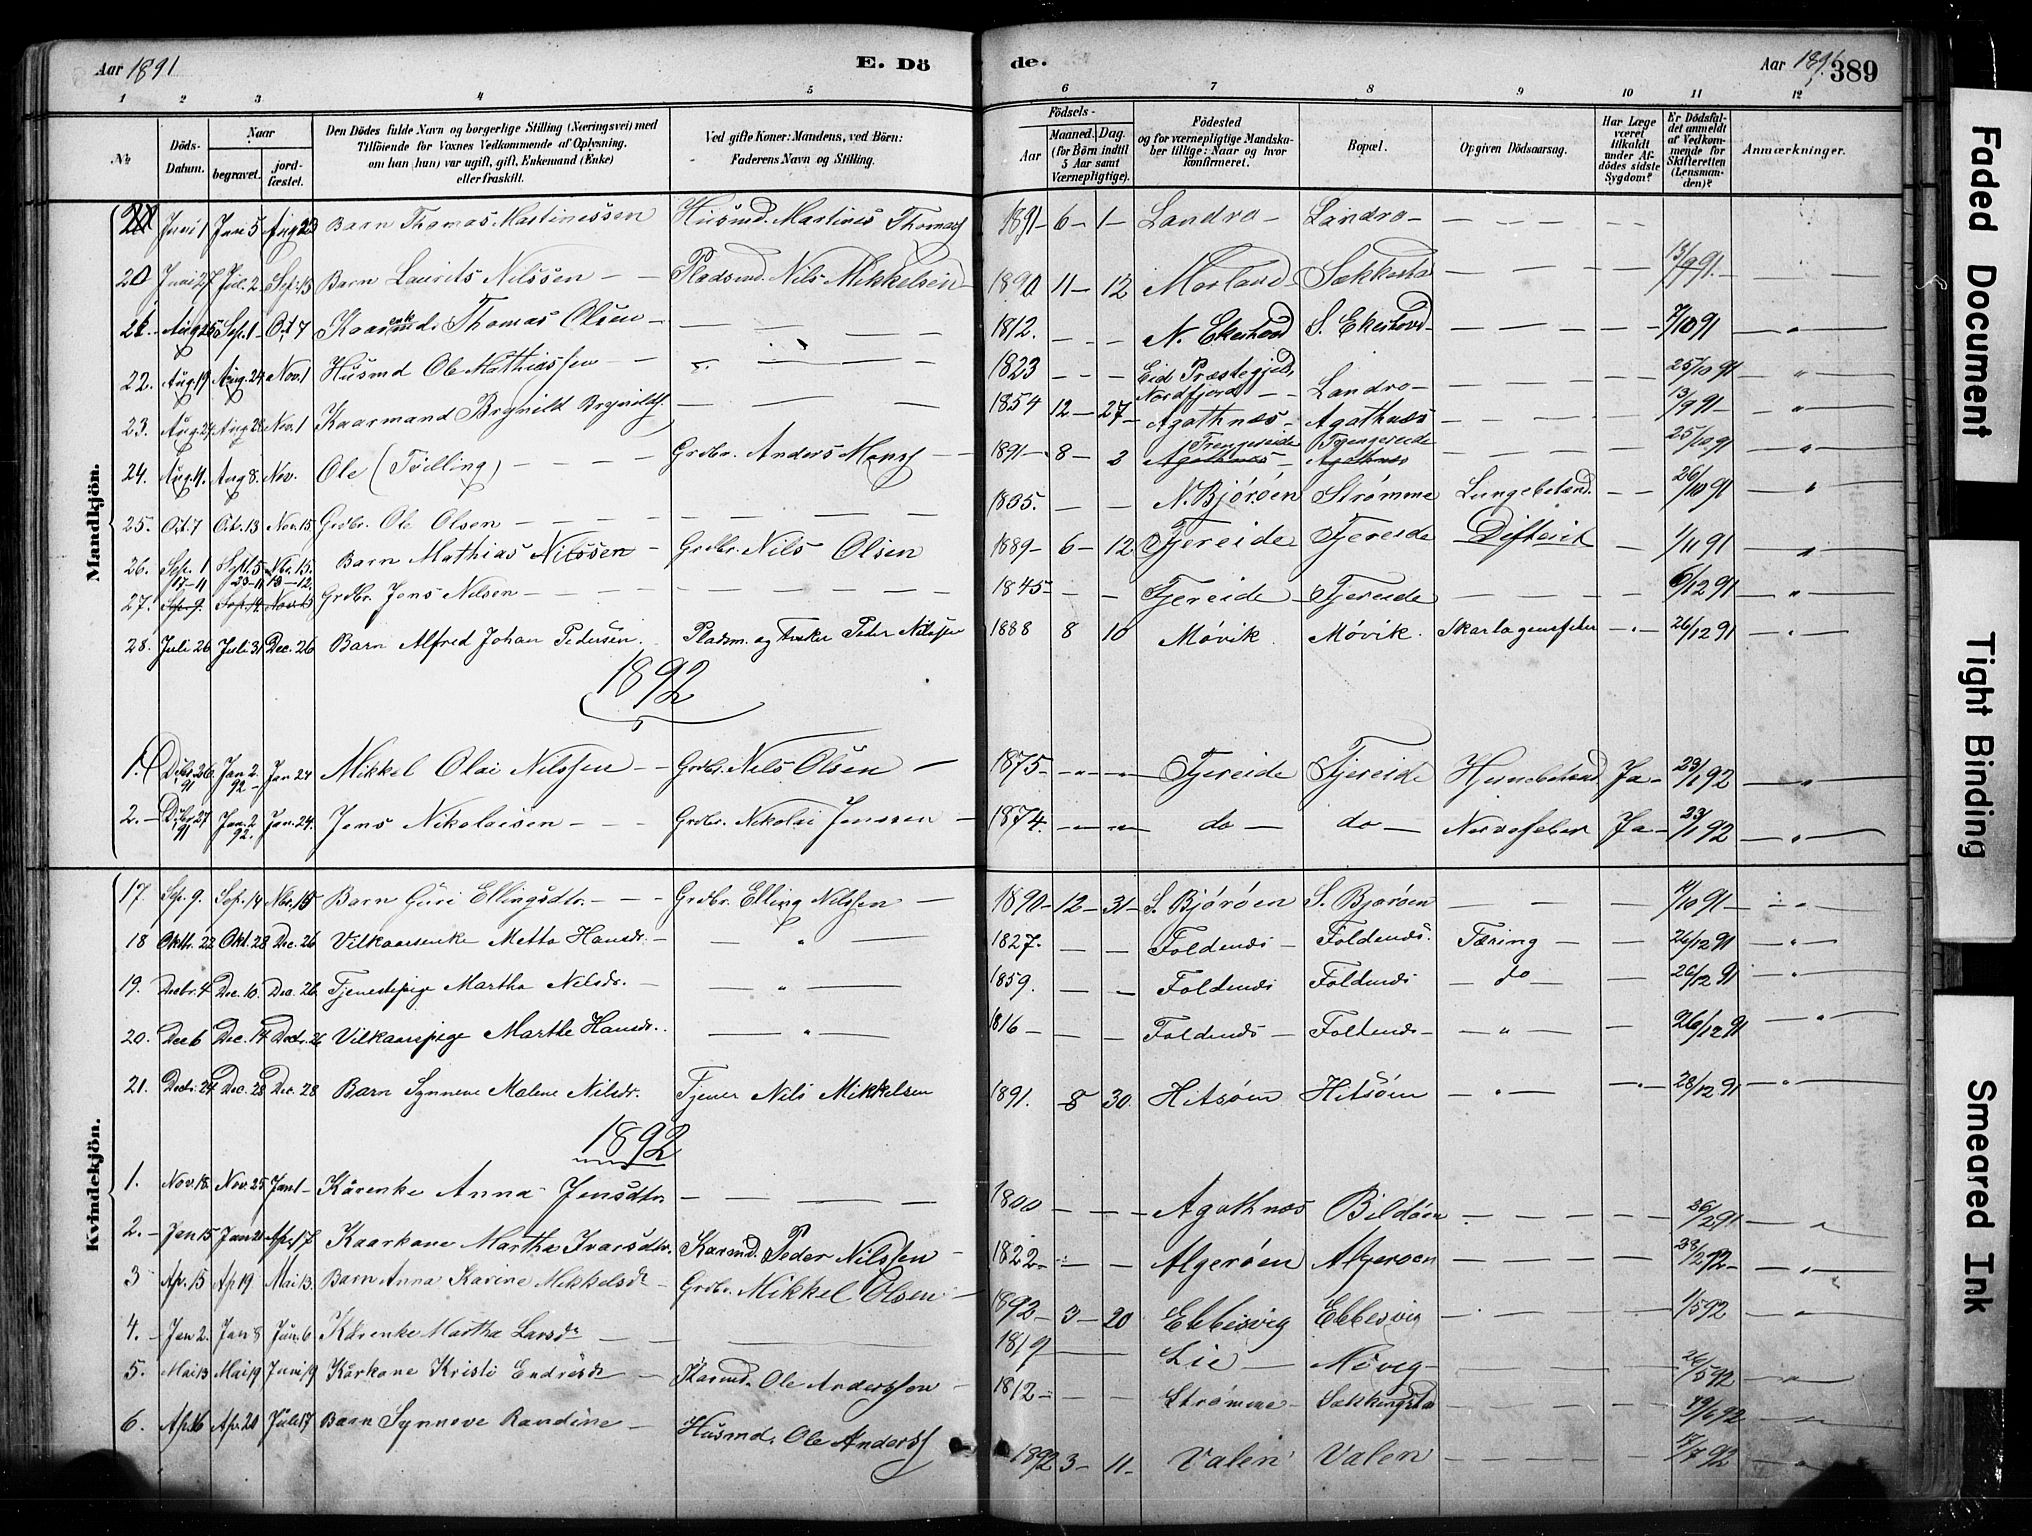 Aar 1891 E. Dö
de. Aar 1891. 389
1 2 3 4 5 6 7 8 9 10 11 12
No
Döds-Datum.
Naar
begravet.
jordfæstet.
Den Dödes fulde Navn og borgerlige Stilling (Næringsvei) med
Tilföiende for Voxnes Vedkommende af Oplysning,
om han (hun) var ugift, gift, Enkemand (Enke)
eller fraskilt.
Ved gifte Koner: Mandens, ved Börn:
Faderens Navn og Stilling.
Födsels-
Aar
Maaned. Dag.
(for Börn indtil
5 Aar samt
Værnepligtige).
Födested
og for værnepligtige Mandskaber tillige: Naar og hvor
konfirmeret.
Bopæl.
Opgiven Dödsaarsag.
Har Læge
været
tilkaldt
under Afdödes sidste
Sygdom?
Er Dödsfaldet anmeldt
af Vedkommende for
Skifteretten
(Lensmanden)?
Anmærkninger.
Mandkjön.
Juni 1 Juni 5 Aug 23 Barn Thomas Martinussen Husmd. Martinus Thomass 1891 - 6 - 1 - Landro - Landro -
20 Juni 27 Jul. 2 Sept. 13 Barn Laurits Nilssen Pladsmd. Nils Mikkelsen 1890 11 - 12 Morland 13/9 91.
21. Aug 25 Sep. 1 Oct 7 Kaarenkmd. Thomas Olsen 1812. N. Ekerhovd S. Ekerhovd 7/10 91
22. Aug. 19 Aug. 24 Nov. 1 Husmd Ole Mathiassen 1823 Eid Præstegjeld, Nordfjord - Landro - 25/10 91
23. Aug. 24 Aug 28 Nov. 1 Kaarmand Brynild Brynilds. 1854 12 - 27 - Agathnæs - Agathnæs 13/9 91
24. Aug. 4. Aug 8. Nov. Ole (Tvilling) Grdbr. Anders Monss 1891 - 8 - 2 Trengereide Trengereide 25/10 91
Agathnæs Agathnæs
25. Oct. 7 Oct. 13 Nov. 15 Grdbr. Ole Olsen 1835. N. Bjørøen Strømme Lungebetænd. 26/10 91
26. Sep. 1 Sept. 5 Nbr. 15. Barn Mathias Nilssen Grdbr. Nils Olsen 1889 - 6 - 12. Tjereide Tjereide Difterit 1/11 91
17-11 23-11 13-12
27. Sep. 9. Sep. 14. Nov. 15 Grdbr. Jens Nilsen 1845 - Tjereide Tjereide 6/12 91
28. Juli 26 Juli 31 Dec. 26 Barn Alfred Johan Pedersen. Pladsm. og Peter Nilssen 1888 8 10 Møvik. Møvik. Skarlagensfeber 26/12 91
1892
1. Dcbr. 26 91 Jan. 2. 92 Jan 24 Mikkel Olai Nilssen Grdbr. Nils Olsen 1875 - Tjereide Tjereide Ja - 23/1 92
2. Dcbr 27 91 Jan. 2 92. Jan. 24. Jens Nikolaisen Grdbr. Nikolai Jenssen 1874. do do Nervefeber Ja - 23/1 92
Kvindekjön.
17. Sep. 9. Sep. 14 Nbr. 15 Barn Guri Ellingsdtr. Grdbr. Elling Nilssen 1890 - 12 - 31 - S. Bjørøen S. Bjørøen 4/10 91
18 Oktbr. 22 Okt. 28 Dec. 26 Vilkaarsenke Metta Hansdr. 1827. Foldenæs Foldenæs. Tæring 26/12 91
19. Decbr. 4 Dec. 10. Dec. 26 Tjenestepige Martha Nilsdr. 1859. Foldenæs Foldenæs do 26/12 91
20. Dec 6 Dec. 14 Decbr. 26 Vilkaarspige Marthe Hansdr. 1816 Foldenæs Foldenæs 26/12 91
21. Decbr. 24 Dec. 28 Dec. 28 Barn Synneve Malene Nilsdr. Tjener Nils Mikkelsen 1891. 8 30. Hitsøen Hitsøen 28/12 91
1892
1. Nov. 18. Nov. 25 Jan 1 Kårenke Anna Jensdtr 1800 Agathnæs Bildøen 26/12 91
2. Jan 15 Jan 21 Apr. 17 Kaarkone Martha Ivarsdtr. Kaarmd. Peder Nilssen 1822 - Algerøen Algerøen 28/2 92
3 Ap. 15 Ap 19 Mai 13. Barn Anna Karine Mikkelsdr Grdbr. Mikkel Olsen 1892 - 3 - 20 Ebbesvig Ebbesvig 1/5 92
4. Jan 2. Jan 8 Jun. 6 Kårenke Martha Larsdr 1819 Lie Møvig
5. Mai 13 Mai 19 Juni 19 Kårkone Kristi Endresdr Kaarmd. Ole Anderssen 1812 - Strømme 26/5 92
6. Ap. 16 Ap. 20 Juli 17 Barn Synneve Randine Husmd. Ole Anderss 1892 3 - 11 - Valen Valen 17/7 92
19/6 92
Faded Document
Tight Binding
Smeared Ink